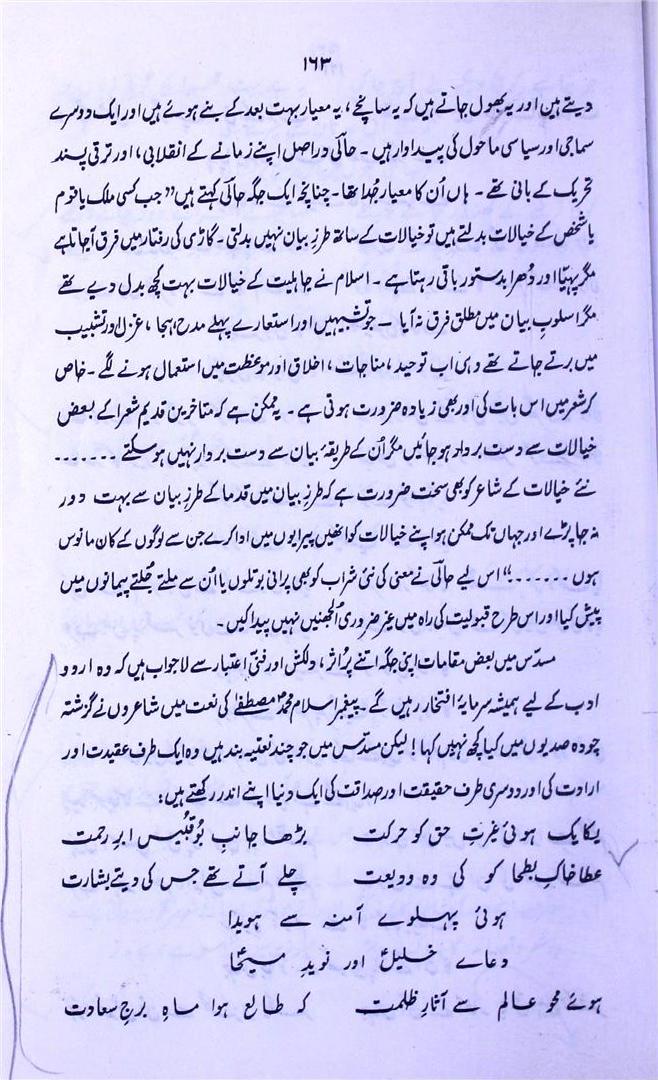 ۱۶۳
دیتے ہین اور یہ بھول جاتے ہیں کہ یہ سانچے، یہ معیار بہت بعد کے بنے ہوئے ہیں اور ایک دوسرے
سماجی اور سیاسی ماحول کی پیداوار ہیں۔ حالؔی دراصل اپنے زمانے کے انقلابی، اور ترقی پسند
تحریک کے بانی تھے۔ ہاں اُن کا معیار جُدا تھا۔ چنانچہ ایک جگہ حالؔی کہتے ہیں ”جب کسی ملک یا قوم
یا شخص کے خیالات بدلتے ہیں تو خیالات کے ساتھ طرزِ بیان نہیں بدلتی۔ گاڑی کی رفتار میں فرق آجاتا ہے
مگر پہیّا اور دُھرا بدستور باقی رہتا ہے۔ اسلام نے جاہلیت کے خیالات بہت کچھ بدل دیے تھے
مگر اسلوبِ بیان میں مطلق فرق نہ آیا۔ جو تشبیہیں اور استعارے پہلے مدح، ہجا، غزل اور تشبیب
میں برتے جاتے تھے وہی اب توحید، مناجات، اخلاق اور موعظت میں استعمال ہونے لگے۔ خاص
کر شعر میں اس بات کی اور بھی زیادہ ضرورت ہوتی ہے۔ یہ ممکن ہے کہ متاخرین قدیم شعرا کے بعض
خیالات سے دست بردار ہو جائیں مگر اُن کے طریقۂ بیان سے دست بردار نہیں ہو سکتے .......
نئے خیالات کے شاعر کو بھی سخت ضرورت ہے کہ طرزِ بیان میں قدما کے طرزِ بیان سے بہت دور
نہ جا پڑے اور جہاں تک ممکن ہو اپنے خیالات کو انھیں پیرایوں میں ادا کرے جن سے لوگوں کے کان مانوس
ہوں .......“ اس لیے حالؔی نے معنی کی نئی شراب کو بھی پرانی بوتلوں یا اُن سے ملتے جُلتے پیمانوں میں
پیش کیا اور اس طرح قبولیت کی راہ میں غیر ضروری اُلجھنیں نہیں پیدا کیں۔
مسدّس میں بعض مقامات اپنی جگہ اتنے پُر اثر، دلکش اور فنّی اعتبار سے لاجواب ہیں کہ وہ اردو
ادب کے لیے ہمیشہ سرمایۂ افتخار رہیں گے۔ پیغمبرِ اسلام محمدؐ مصطفےٰ کی نعت میں شاعروں نے گزشتہ
چودہ صدیوں میں کیا کچھ نہیں کہا! لیکن مسدّس میں جو چند نعتیہ بند ہیں وہ ایک طرف عقیدت اور
ارادت کی اور دوسری طرف حقیقت اور صداقت کی ایک دنیا اپنے اندر رکھتے ہیں:
یکایک ہوئی غیرتِ حق کو حرکت بڑھا جانبِ بُوقُبَیس ابرِ رحمت
عطا خاکِ بطحا کو کی وہ ودیعت چلے آتے تھے جس کی دیتے بشارت
ہوئی پہلوے آمنہ سے ہویدا
دعاے خلیلؑ اور نویدِ مسیحاؑ
ہوئے محو عالم سے آثارِ ظلمت کہ طالع ہوا ماہِ برجِ سعادت